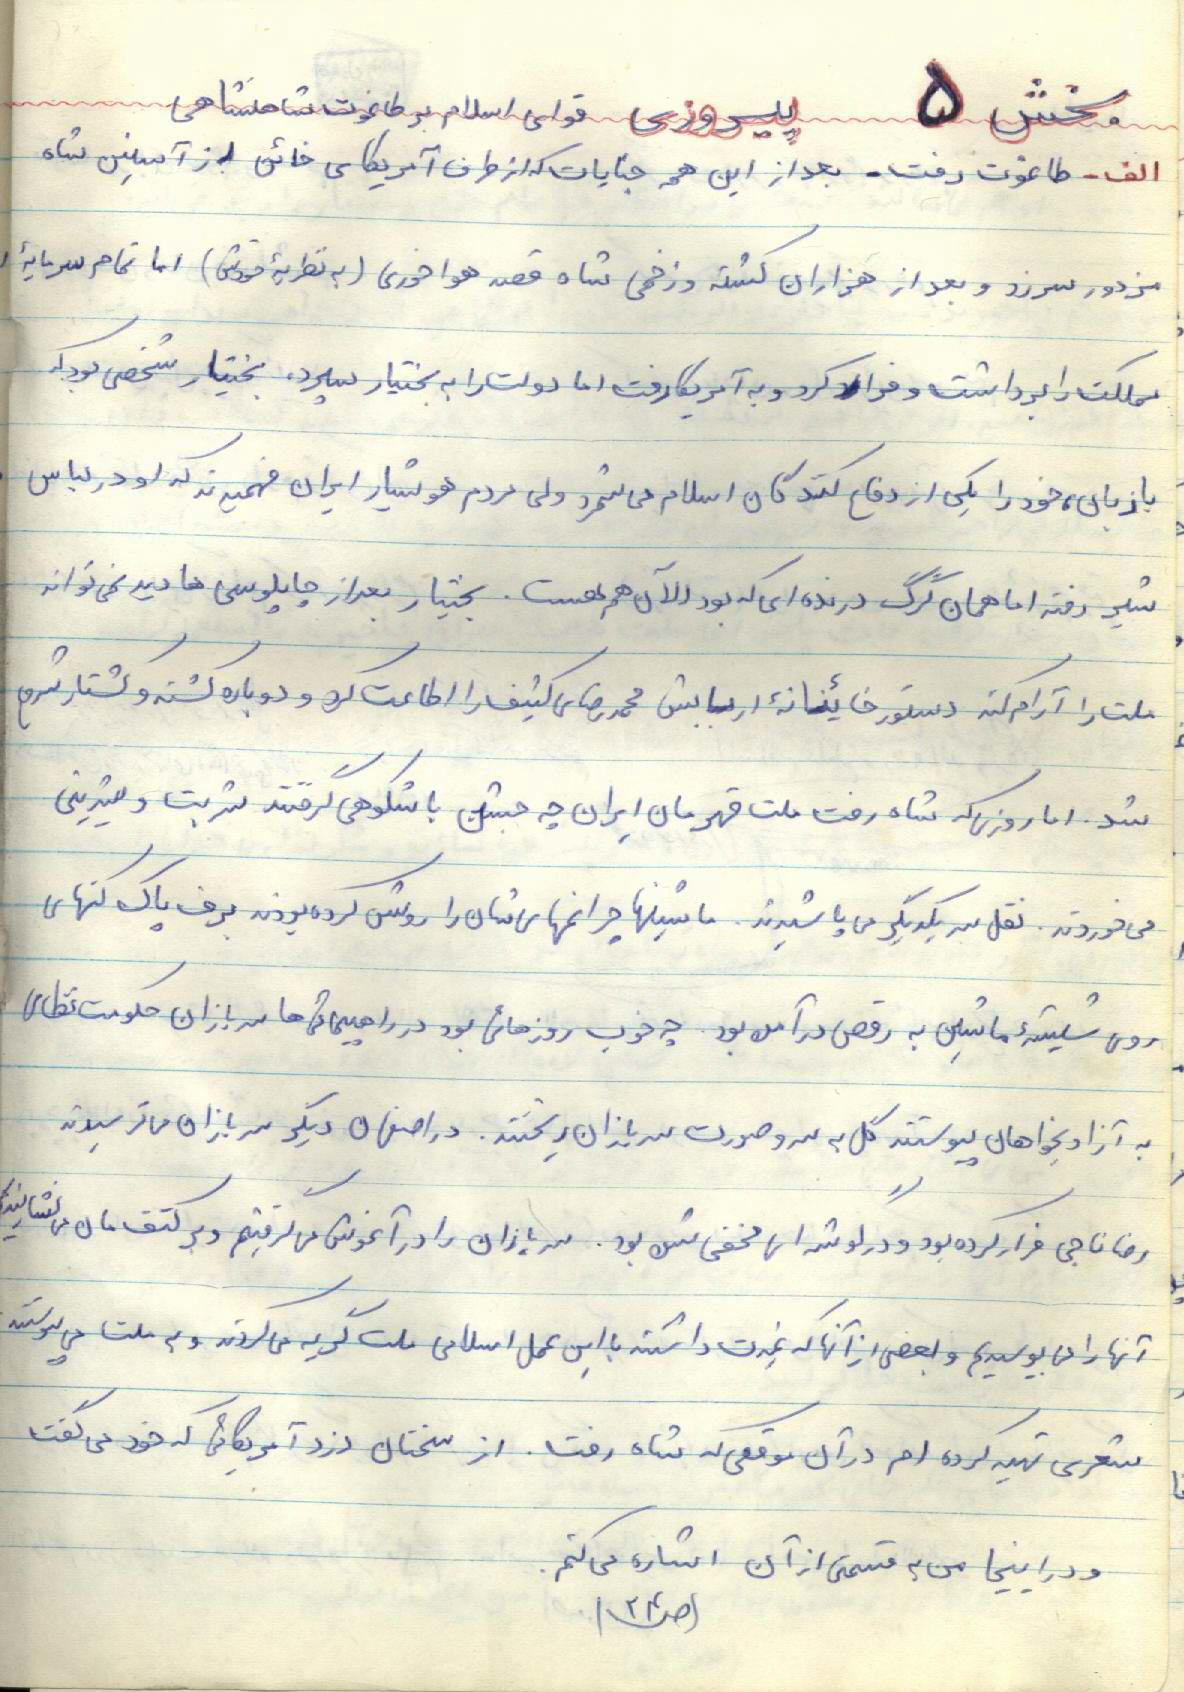 بخش ۵ پیروزی قوای اسلام بر طاغوت شاهنشاهی
الف - طاغوت رفت - بعد از این همه جنایات که از طرف آمریکای خائن از آستین شاه
مزدور سر زد و بعد از هزاران کشته و زخمی شاه قصد هواخوری (به نظریهٔ خودش) اما تمام سرمایهٔ
مملکت را برداشت و فرار کرد و به آمریکا رفت اما دولت را به بختیار سپرد. بختیار شخصی بود که
با زبان، خود را یکی از دفاع کنندگان اسلام می شمرد ولی مردم هوشیار ایران فهمیدند که او در لباس
شیر رفته اما همان گرگ درنده ای که بود الآن هم هست. بختیار بعد از چاپلوسی ها دید نمی تواند
ملت را آرام کند دستور خائنانهٔ اربابش محمدرضای کثیف را اطاعت کرد و دوباره کشته و کشتار شروع
شد. اما روزی که شاه رفت ملت قهرمان ایران چه جشن با شکوهی گرفتند شربت و شیرینی
می خوردند. نقل سر یکدیگر می پاشیدند. ماشینها چراغهای شان را روشن کرده بودند برف پاک کنهای
روی شیشهٔ ماشین به رقص در آمده بود. چه خوب روزهائی بود در راهپیمائی ها سربازان حکومت نظامی
به آزادیخواهان پیوستند گل به سر و صورت سربازان ریختند. در اصفهان دیگر سربازان می ترسیدند
رضا ناجی فرار کرده بود و در گوشه ای مخفی شده بود. سربازان را در آغوش می گرفتیم و بر کتف مان می نشاندیم
آنها را می بوسیدیم و بعضی از آنها که غیرت داشتند با این عمل اسلامی ملت گریه می کردند و به ملت می پیوستند.
شعری تهیه کرده ام در آن موقعی که شاه رفت. از سخنان دزد آمریکائی که خود می گفت
و در اینجا من به قسمتی از آن اشاره می کنم.
(ص ۲۴)